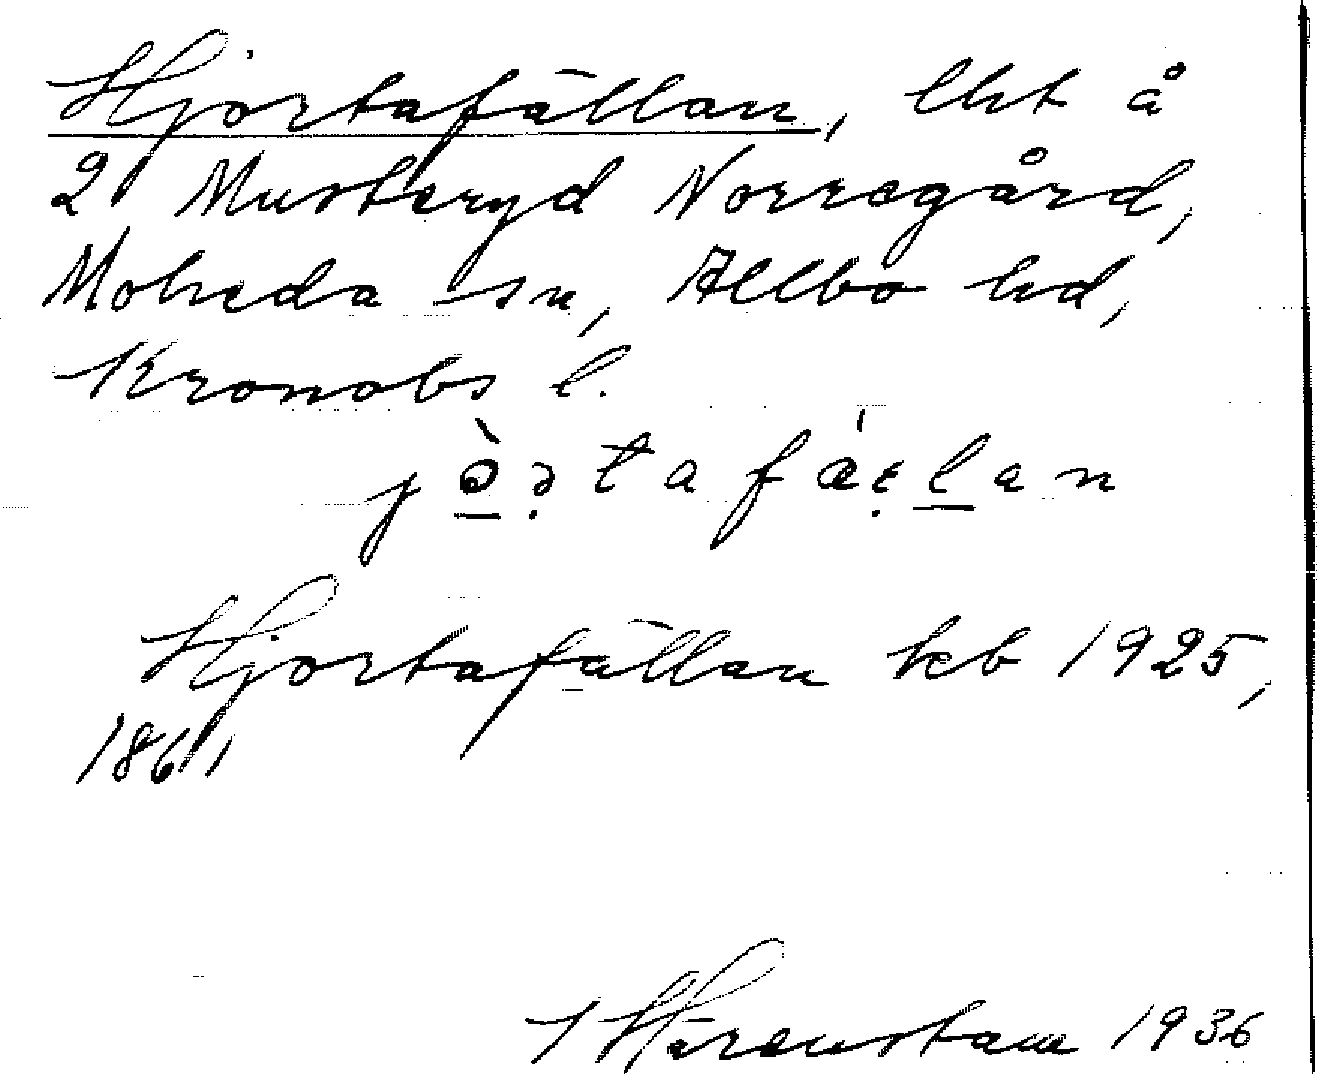 Hjortafällan, lht å
2 Musteryd Norregård,
Moheda sn, Allbo hd,
Kronobs l.
jòərtafáɛlan
Hjortafällan kb 1925,
1861
Härenstam 1936